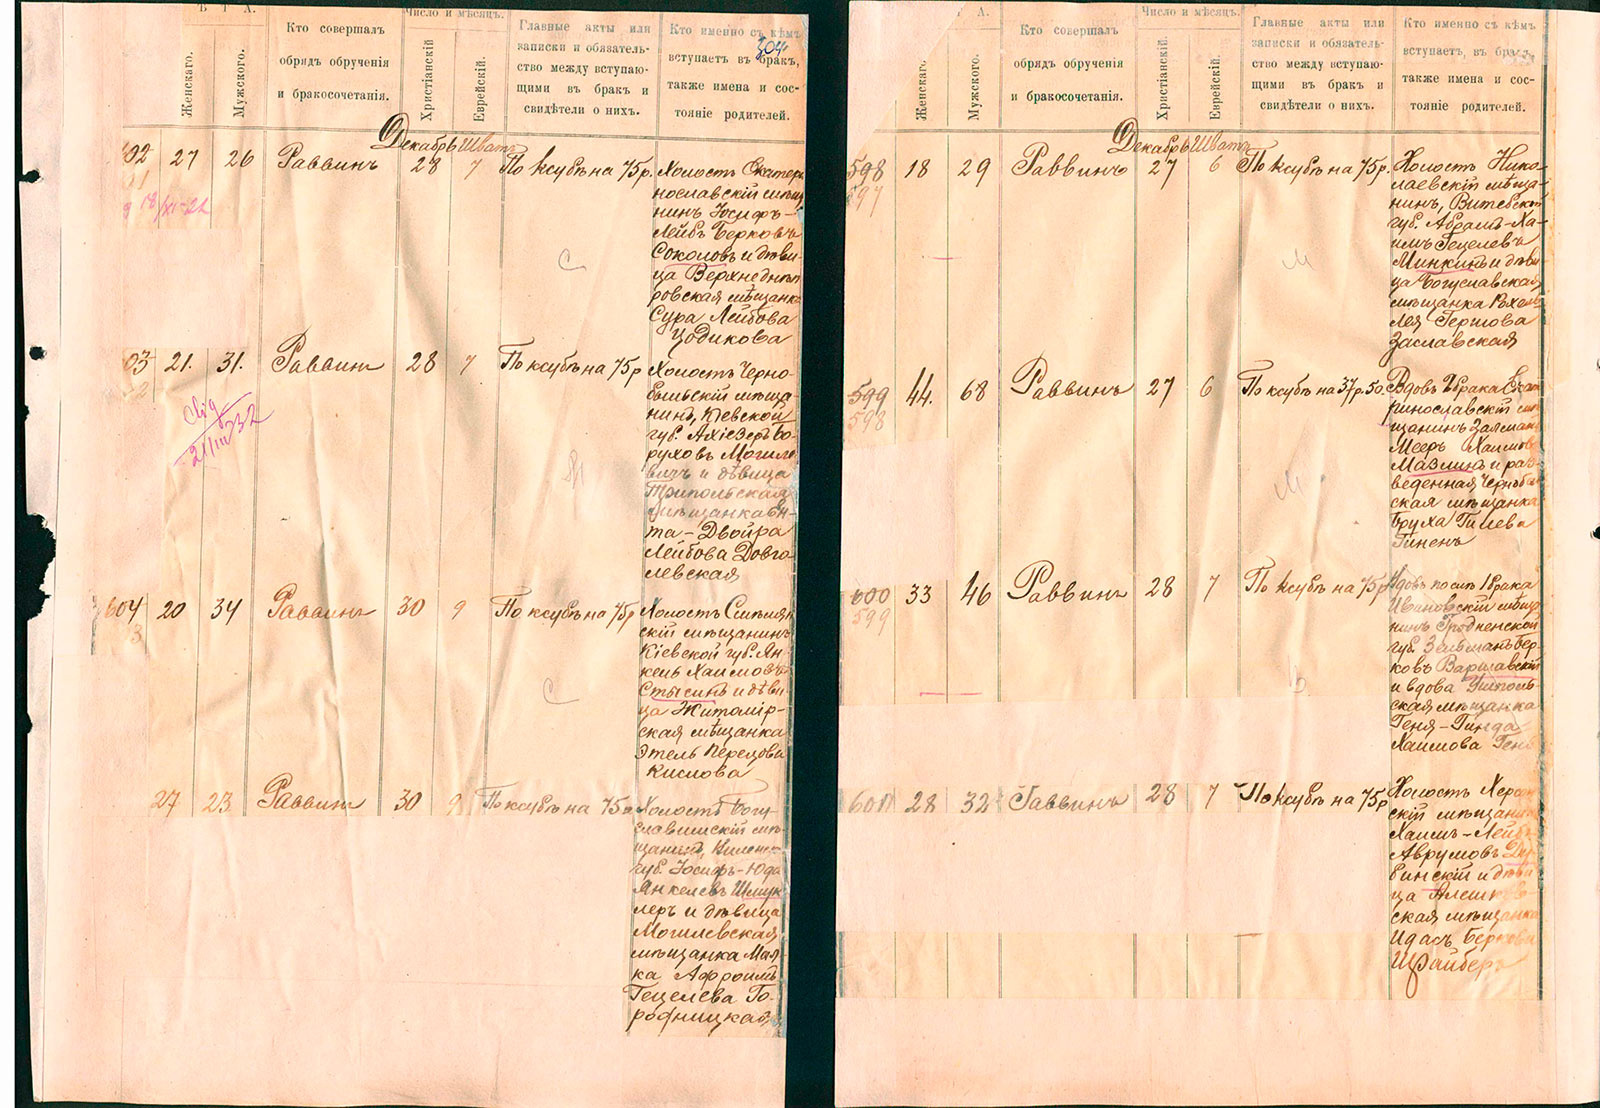 Женскаго.
Мужского.
Кто совершалъ
обрядъ обрученія
и бракосочетанія.
Число и мѣсяцъ.
Христіанскій
Еврейскій.
Главные акты или
записки и обязатель-
ство между вступаю-
щими въ бракъ и
свидѣтели о нихъ.
Кто именно съ кѣмъ
вступаетъ въ бракъ,
также имена и сос-
тояніе родителей.
304
Декабрь Шватъ
602 27 26 Раввинъ 28 7 По ксубѣ на 75 р.
18/XI-22
Холостъ Екатери
нославскій мѣща
нинъ Іосифъ-
Лейбъ Берковъ
Соколовъ и дѣви-
ца Верхнеднѣп
ровская мѣщанка
Сура Лейбова
Цодикова
С
603 21. 31. Раввинъ 28 7 По ксубѣ на 75 р
21/III 32
Холостъ Черно-
быльскій мѣща-
нинъ, Кіевской
губ. Ахіезеръ Бо-
руховъ Могиле
вичъ и дѣвица
Трипольская
мѣщанка
та-Двойра
Лейбова Довга
левская
М
604 20 34 Раввинъ 30 9 По ксубѣ на 75 р
Холостъ Смѣлян
скій мѣщанинъ
Кіевской губ. Ян-
кель Хаимовъ
Стысинъ и дѣви-
ца Житомір-
ская мѣщанка
Этель Перецова
Кислова
С
27 23 Раввинъ 30 9 По ксубѣ на 75 р
Холостъ Богу-
славишскій мѣ-
щанинъ,
губ. Іосифъ-Юда
Янкелевъ Шмук
леръ и дѣвица
Могилевская
мѣщанка Мал-
ка Афроимъ
Гецелева Го-
родницкая
Женскаго
Мужского.
Кто совершалъ
обрядъ обрученія
и бракосочетанія.
Число и мѣсяцъ.
Христіанскій
Еврейскій.
Главные акты или
записки и обязатель-
ство между вступаю-
щими въ бракъ и
свидѣтели о нихъ.
Кто именно съ кѣмъ
вступаетъ, въ бракъ,
также имена и сос-
тояніе родителей.
Декабрь Шватъ
598 18 29 Раввинъ 27 6 По ксубѣ на 75 р.
597
Холостъ Нико-
лаевскій мѣща-
нинъ, Витебской
губ. Абрамъ-Ха-
имъ Гецелевъ
Минкинъ и дѣви
ца Богуславская
мѣщанка Рохель
Лея Гершова
Заславская
М
599 44. 68 Раввинъ 27 6 По ксубѣ на 37 р. 50.
598
Вдовъ 2 брака Екат
ринославскій мѣ
щанинъ Залманъ
Мееръ Хаимовъ
Мазлинъ и раз-
веденная Чернобыл
ская мѣщанка
Бруха Гилева
Гиненъ
М.
600 33 46 Раввинъ 28 7 По ксубѣ на 75 р
599
Вдовъ послѣ 1 брака
Ивановскій мѣща
нинъ Гродненской
губ. Зельманъ Бер-
ковъ Варшавскій
и вдова Ушполь-
ская мѣщанка
Геня-Гинда
Хаимова Генъ
В
601 28 32 Раввинъ 28 7 По ксубѣ на 75 р
Холостъ Херсон
скій мѣщанинъ
Хаимъ-Лейбъ
Аврумовъ Ду-
бинскій и дѣви
ца Алешков
ская мѣщанка
Идасъ Беркова
Шрайберъ